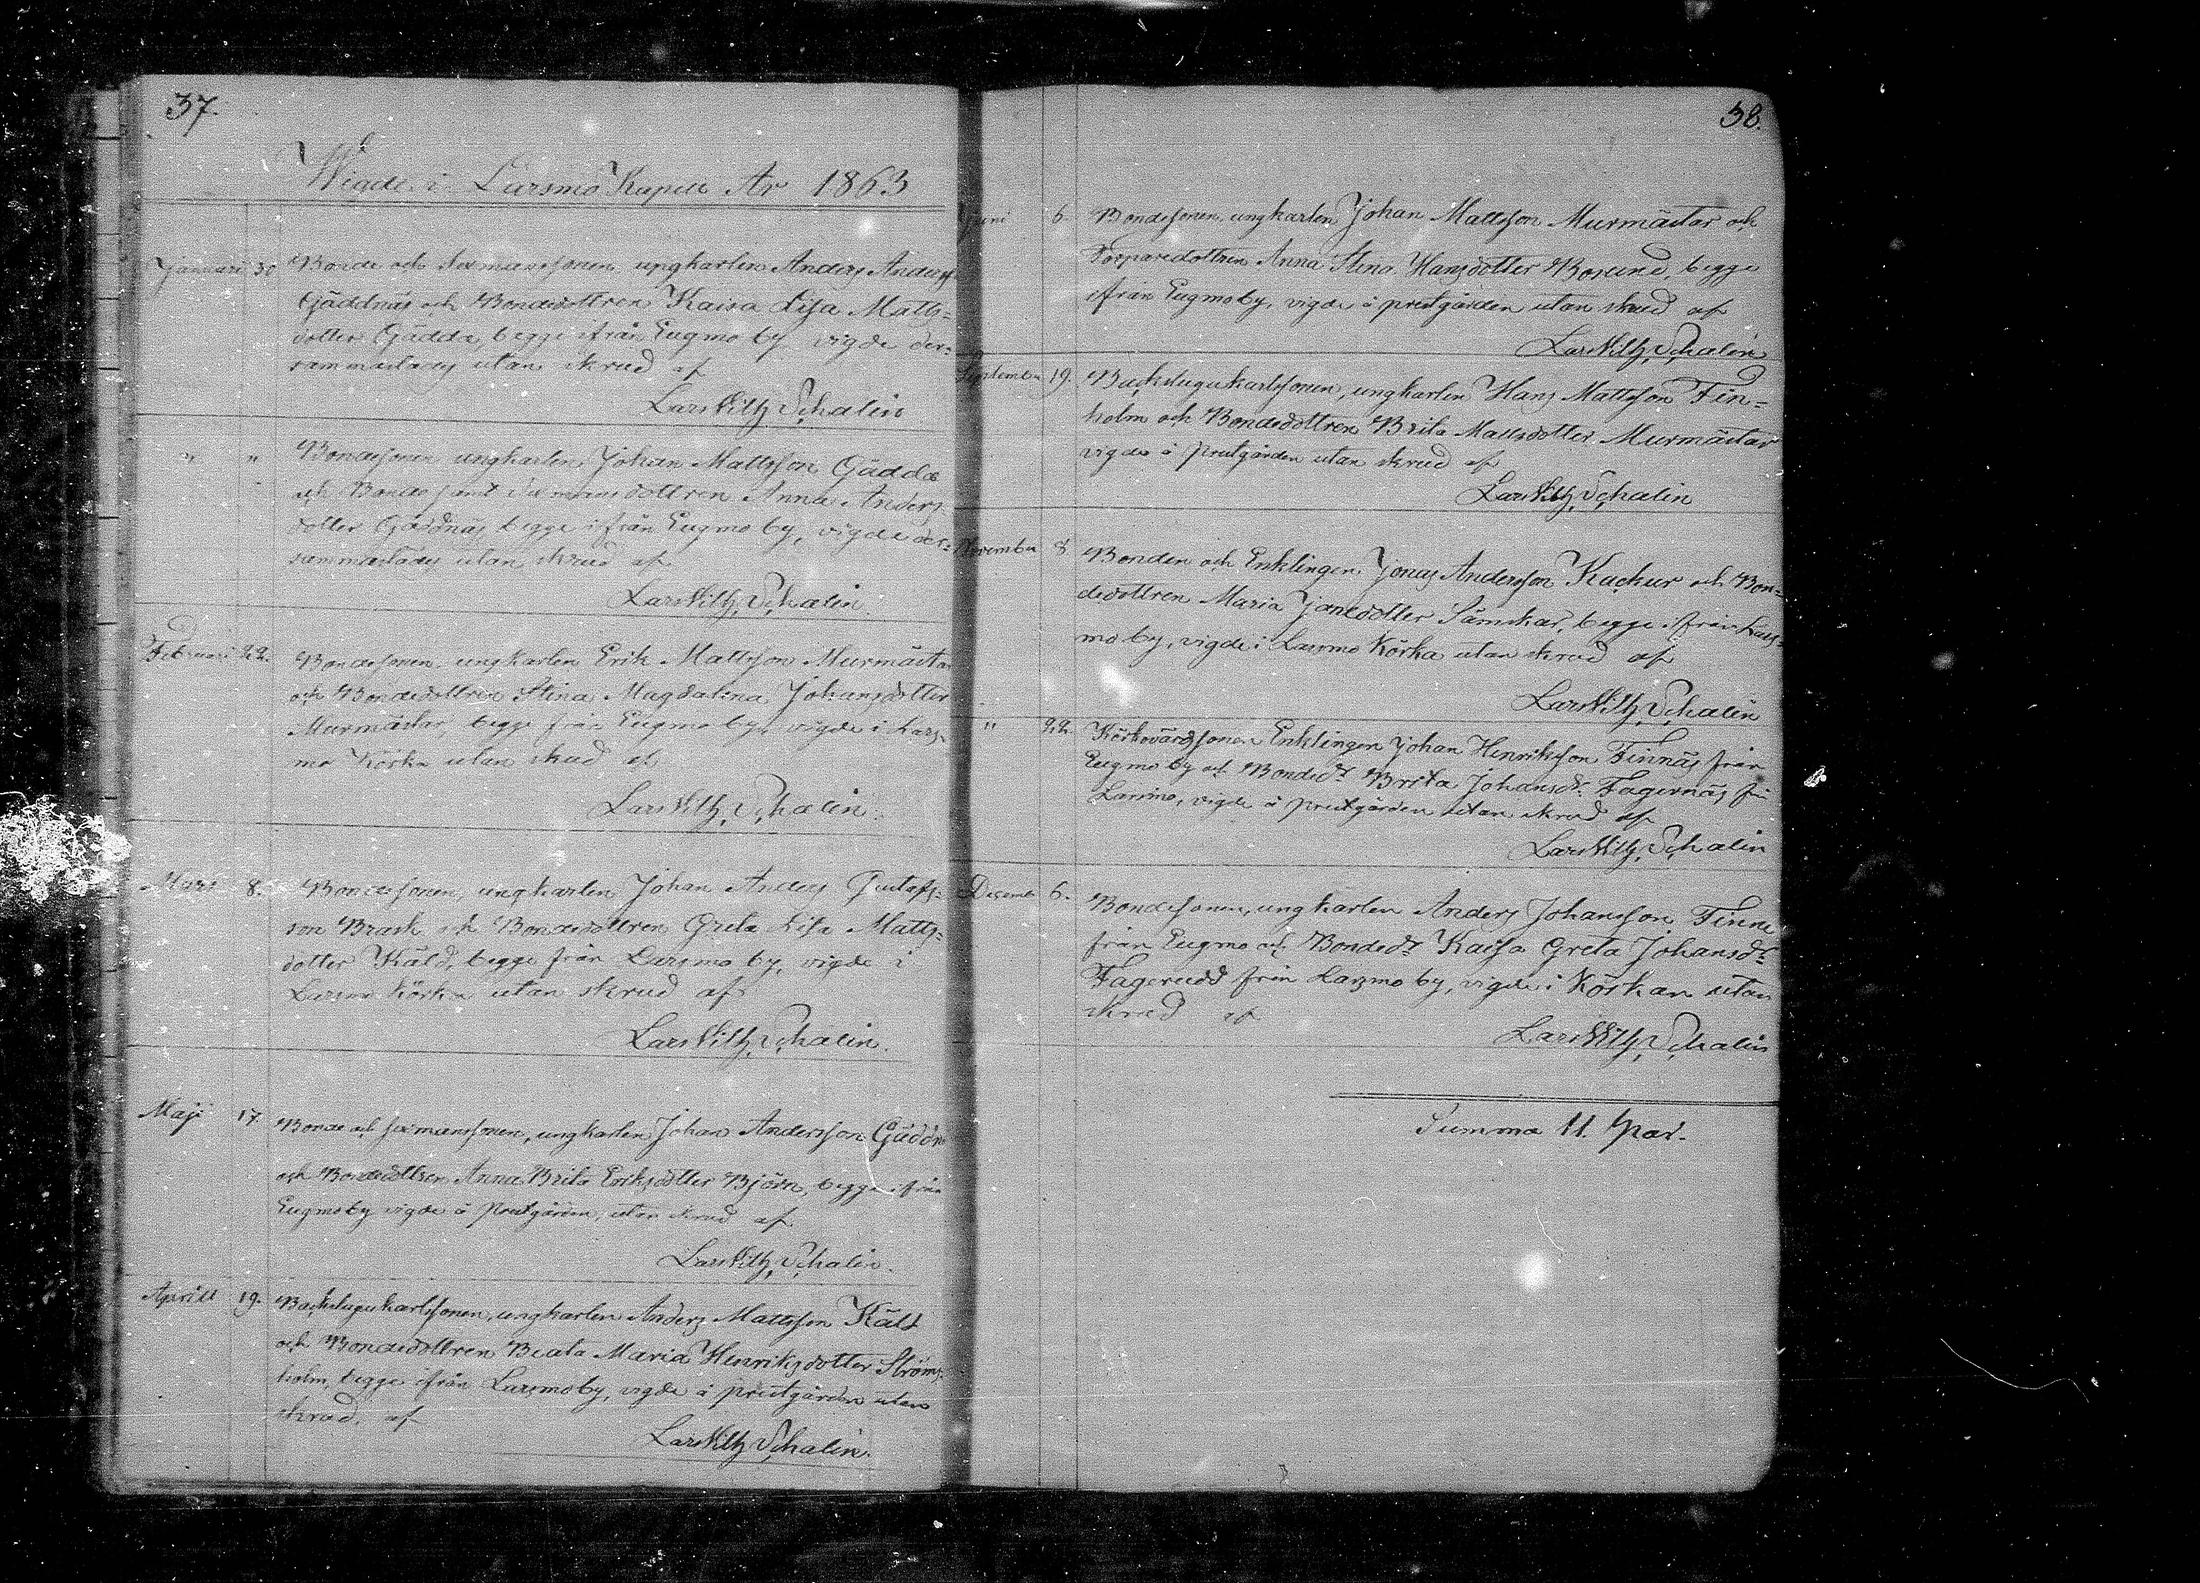 37.
Wigde i Larsmo Kapell År 1863
Januari 30 Bonde och Sexmanssonen, ungkarlen Anders Anderss.
Gäddnäs och Bondedottren Kaisa Lisa Matts=
dotter Gädda, begge ifrån Eugmo by vigde der=
sammastades utan skrud af
Lars Wilh. Schalin
" " Bondesonen ungkarlen Johan Mattsson Gädda
och Bonde samt Sexmansdottren Anna Anders
dotter Gäddnäs begge ifrån Eugmo by, vigde der=
sammastades utan skrud af
Lars Wilh. Schalin.
Februari 22. Bondesonen, ungkarlen Erik Mattsson Murmästar
och Bondedottren Stina Magdalena Johansdotter
Murmästar, begge från Eugmo by, vigde i Lars=
mo Körka utan skrud af
Lars Wilh. Schalin.
Mars 8. Bondesonen, ungkarlen Johan Anders Gustafs=
son Brask och Bondedottren Greta Lisa Matts=
dotter Käld, begge från Larsmo by, vigde i
Larsmo Körka utan skrud af
Lars Wilh. Schalin.
Maji 17. Bonde och sexmanssonen, ungkarlen Johan Andersson Gäddn
och Bondedottren Anna Brita Eriksdotter Björn, begge ifrån
Eugmo by vigde å Prestgården, utan skrud af
Lars Wilh. Schalin.
Aprill 19. Backstugukarlssonen, ungkarlen Anders Mattsson Käld
och Bondedottren Beata Maria Henriksdotter Ströms=
holm, begge ifrån Larsmo by, vigde å prestgården utan
skrud. af
Lars Wilh. Schalin.
38.
Juni 6. Bondesonen, ungkarlen Johan Mattsson Murmästar och
Torparedottren Anna Stina Hansdotter Bosund, begge
ifrån Eugmo by, vigde å prestgården utan skrud af
Lars Wilh. Schalin
September 19. Backstugukarlssonen, ungkarlen Hans Mattsson Fin=
holm och Bondedottren Brita Mattsdotter Murmästar
vigde å Prestgården utan skrud af
Lars Wilh. Schalin
November 8. Bonden och Enklingen Jonas Andersson Kackur och Bon=
dedottren Maria Jansdotter Sämskar, begge ifrån Lars=
mo by, vigde i Larsmo Körka utan skrud af
Lars Wilh. Schalin
" 22. Körkovärdssonen Enklingen Johan Henriksson Finnäs från
Eugmo by och Bondedr Brita Johansdr. Fagernäs från
Larsmo, vigde å prestgården utan skrud af
Lars Wilh. Schalin
December 6. Bondesonen, ungkarlen Anders Johansson Finne
från Eugmo och Bondedr Kaisa Greta Johansdr
Fagerudd från Larsmo by, vigde i Körkan utan
skrud af
Lars Wilh. Schalin
Summa 11. Par.